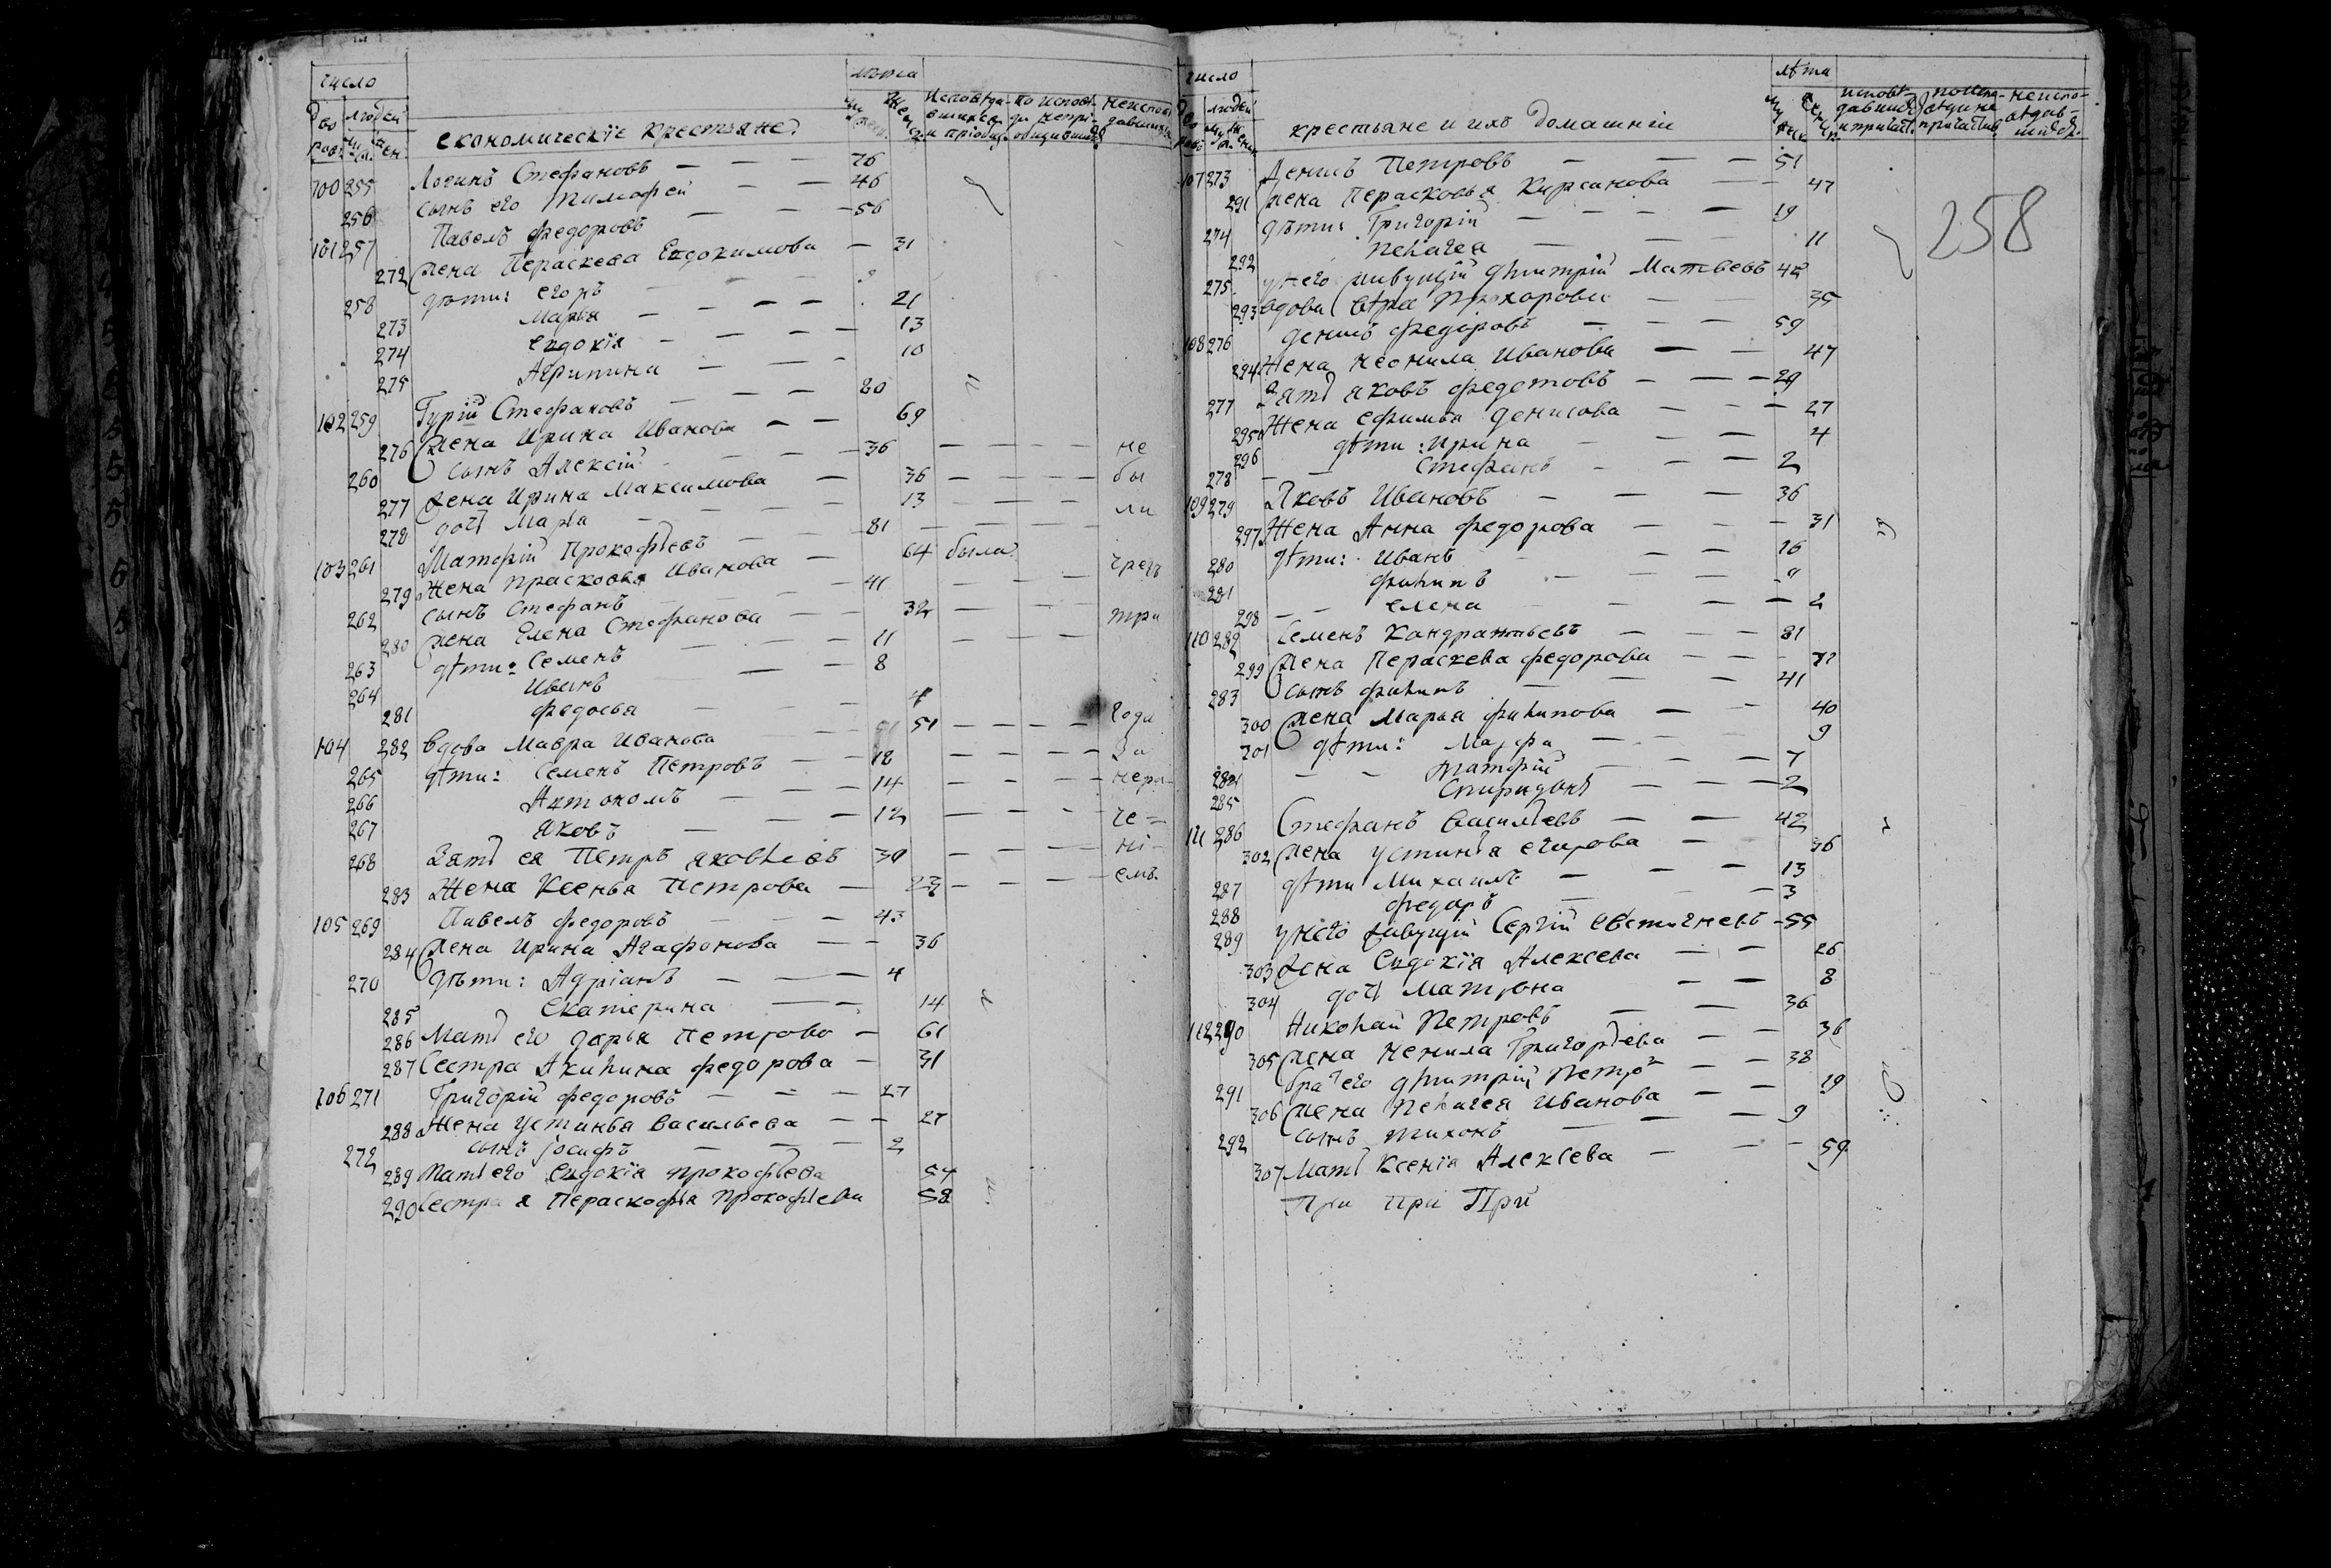 число лѣта
Дво ровъ людей му. жен. економическїе крестьяне Исповѣдавшихся и пріобщ. по исповѣди непріобщившихся неисповѣдавшихся
100 255 Логинъ Стефановъ — — — 76
256 сынъ его Тимофей — — 46
101 257 Павелъ Федоровъ — — 56
272 жена Пераскева Евдокимова — 31
258 дѣти: Егоръ —
273 Марья — — — 21
274 Евдокїя — — — 13
275 Агрипина — — — 10
102 259 Гурїй Стефановъ — — — 80
276 жена Ирина Иванова — — 69
260 сынъ Алексій — — — 36 — — — не
277 жена Ирина Максимова — 36 — — — — бы
278 дочь Марья — — — 13 — — ли
103 261 Матфїй Прокофьевъ — — 81 — — — —
279 жена Прасковья Иванова — 64 была чрезъ
262 сынъ Стефанъ — — — 41 — — —
280 жена Елена Стефанова — — 32 — — — три
263 дѣти: Семенъ — — — 11 — — —
264 Иванъ — — — 8
281 Федосья — — — 4 года
104 282 вдова Мавра Иванова — — 51 — — — —
265 дѣти: Семенъ Петровъ — — 18 — — — — за
266 Автономъ — — — 14 — — — — нера-
267 Яковъ — — — 12 — — — че=
268 Зять ея Петръ Яковлевъ 30 — — — — нї-
283 Жена Ксенья Петрова — 23 — — — — емъ.
105 269 Павелъ Федоровъ — — — 43
284 жена Ирина Агафонова — — 36
270 дѣти: Адрїанъ — — — 4
285 Екатерина — — 14
286 Мать его Дарья Петрова — 61
287 Сестра Акилина Федорова — 31
106 271 Григорїй Федоровъ — — — 27
288 Жена Устинья Васильева — — 27
272 сынъ Іосифъ — — — 2
289 Мать его Евдокїя Прокофьева 57
290 Сестра я Пераскофья Прокофьева 58
число лѣта
Дво ровъ людей му. жен. крестьяне и ихъ домашнїи исповѣдавшихся и причаст. по исповѣди не причастив. неисповѣдавшихся
107 273 Денисъ Петровъ — — — 51
291 жена Перасковья Кирсанова — — 47
274 дѣти: Григорїй — — — — 19
292 Пелагея — — — 11
275 у него живущїй Дмитрїй Матвеевъ 42
293 вдова Вѣра Прохорова — 35
258
108 276 Денисъ Федоровъ — — — 59
294 Жена Неонила Иванова — — 47
277 Зять Яковъ Федотовъ — — — 29
295 Жена Ефимья Денисова — — — 27
296 дѣти: Ирина — — — 4
278 — — Стефанъ — — — 2
109 279 Яковъ Ивановъ — — — 36
297 Жена Анна Федорова — — — 31
280 дѣти: Иванъ — — — 16
281 Филипъ — — — —
298 — — Елена — — — 2
110 282 Семенъ Кондратьевъ — — — 81
299 жена Пераскева Федорова — — —
283 сынъ Филипъ — — — 41
300 жена Марья Филипова — — 40
301 дѣти: Марфа — — — 9
284 — — Матфїй — — — 7
285 Спиридонъ — — — 2
111 286 Стефанъ Васильевъ — — 42
302 жена Устинья Егорова — 36
287 дѣти Михаилъ — — — 13
288 Федоръ — — 3
289 у него живущїй Сергїй Евстигнеевъ — 55
303 жена Евдокїя Алексеева — — 26
304 дочь Матрона — — 8
112 290 Николай Петровъ — — 36
305 жена Ненила Григорьева — — 36
291 братъ его Дмитрїй Петро — — 38
306 жена Пелагея Иванова — — 19
292 сынъ Тихонъ — — — 9
307 Мать Ксенїя Алексеева — — — 59
При При При